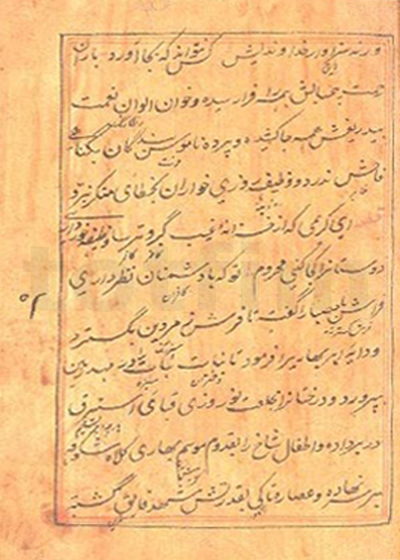 ورنه سزاوار خداوندیش کس نتواند که بجا آورد باران
رحمت بیحسابش همه را رسیده وخوان الوان نعمت
بیدریغش همه جا کشیده و پرده ناموس بندگان بگناه
فاحش ندرد و وظیفه روزی خواران بخطای منکر نبرد
ای کریمی که از خزانه غیب گبر و ترسا وظیفه خور داری
دوستانرا کجا کنی محروم تو که با دشمنان نظر داری
فراش باد صبا را گفته تا فرش زمردین بگسترد
ودایه ابر بهاریرا فرمود تا بنات نبات را در مهد زمین
بپرورد و درختانرا بخلعت نوروزی قبای استبرق
در بر داده واطفال شاخ را بقدوم موسم بهاری کلاه شکوفه
بر سر نهاده وعصاره تاکی بقدرتش شهد فایق گشته